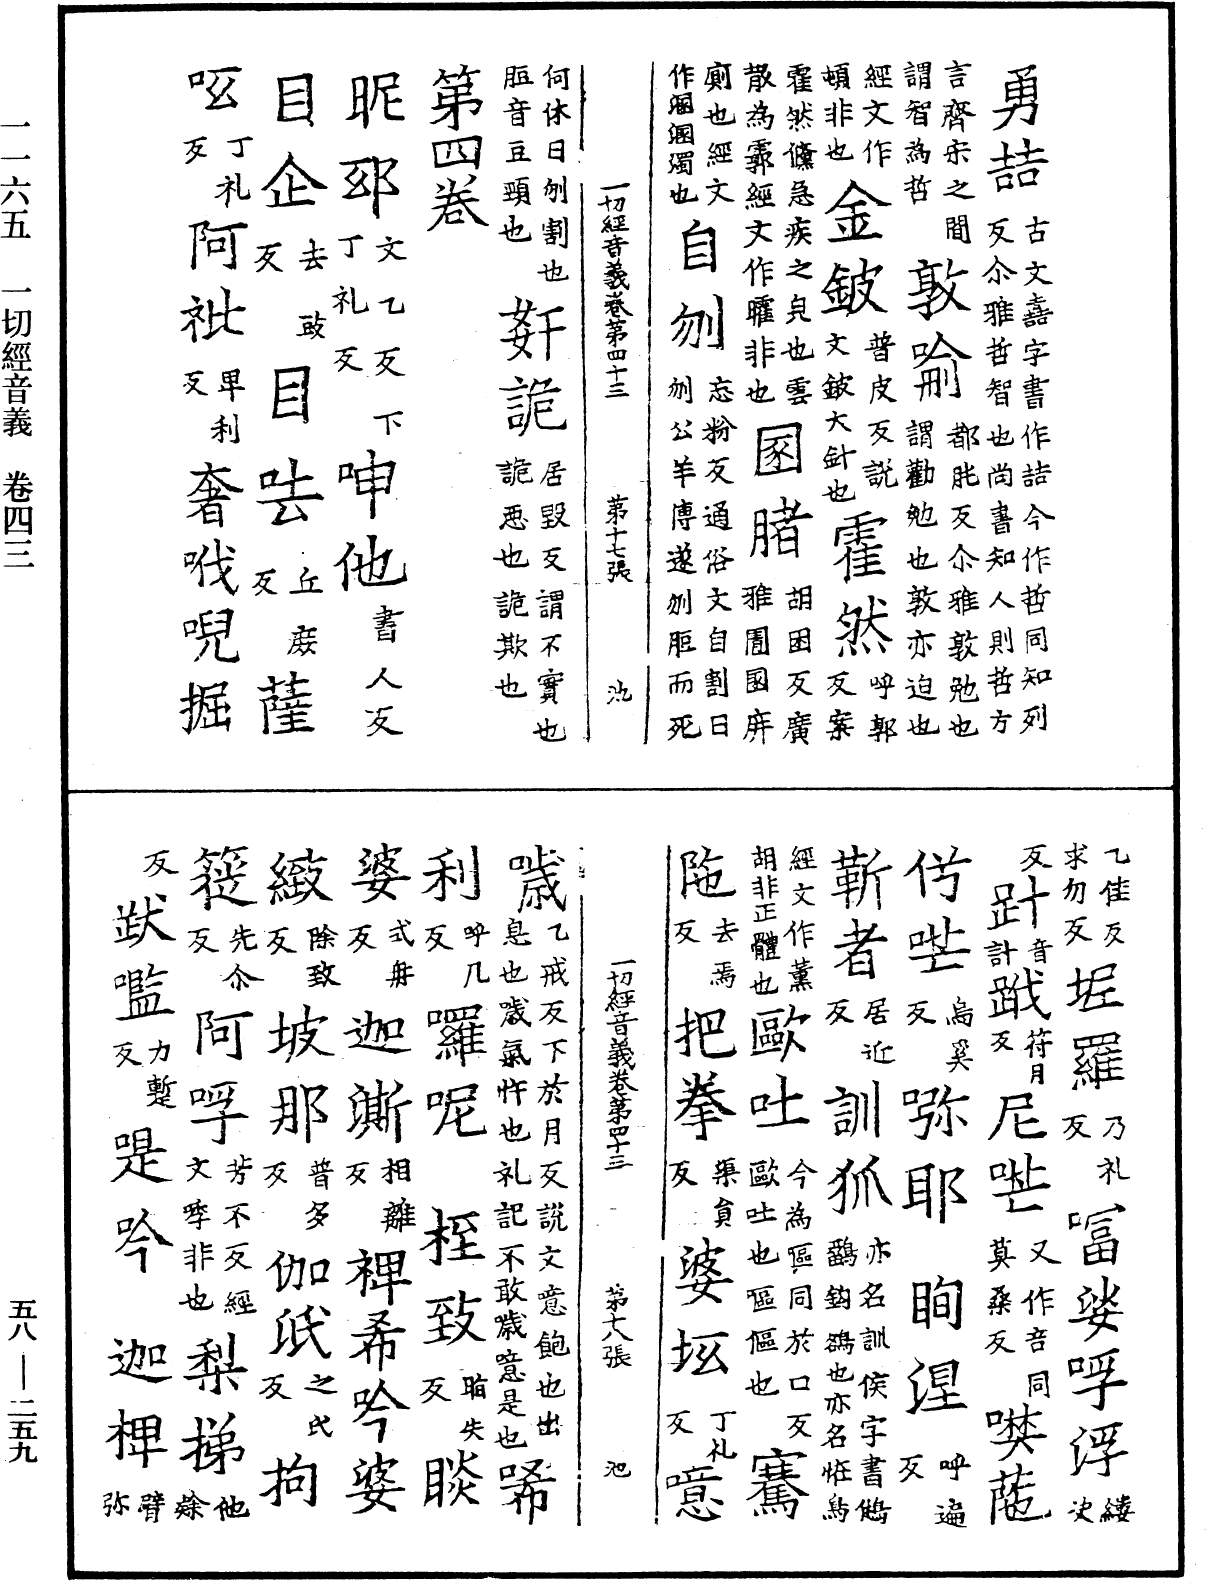 勇喆古文嚞字書作喆今作哲同知列反尒雅哲智也尚書知人則哲方
言齊宋之間謂智為哲敦喻都肫反尒雅敦勉也謂勸勉也敦亦迫也
經文作頓非也金鈹普皮反說文鈹大針也霍然呼郭反案
霍然儵急疾之皃也雲散為霩經文作矐非也圂腤胡困反廣雅圊圂屏
廁也經文作溷溷濁也自刎忘粉反通俗文自割曰刎公羊傳遂刎脰而死
一切經音義卷第四十三 第十七張 池
何休曰刎割也脰音豆頸也姧詭居毀反謂不實也詭惡也詭欺也
第四卷
昵䣅文乙反下丁礼反呻他書人反
目企去豉反目呿丘庶反薩
呍丁礼反阿祉卑利反奢哦唲掘
乙佳反求勿反坭羅乃礼反㗒娑呼浮縷決
反趽音計䟦符月反尼㘁又作咅同莫桑反㗼陁
㑌㘁烏奚反嚩耶眴涅呼遍反
靳者居近反訓狐亦名訓侯字書鵂鶹鉤鵅也亦名恠鳥
經文作薰胡非正體也歐吐今為傴同於口反歐吐也傴傴也騫
陁去焉反把拳渠員反婆坛丁礼反噫
一切經音義卷第四十三 第十八張 池
噦乙戒反下於月反說文噫飽也出息也噦氣忤也礼記不敢噦噫是也唏
利呼几反羅呢桎致睒失反睒
婆式舟反迦㵋相離反裨希吟婆
緻除致反坡那普多反伽泜之氏反拘
簁先尒反阿呼芳不反經文㖓非也梨挮他蘇
反䟦嚂力蹔反嗁吟迦椑臂弥
一一六五 一切經音義 卷四三
五八—二五九